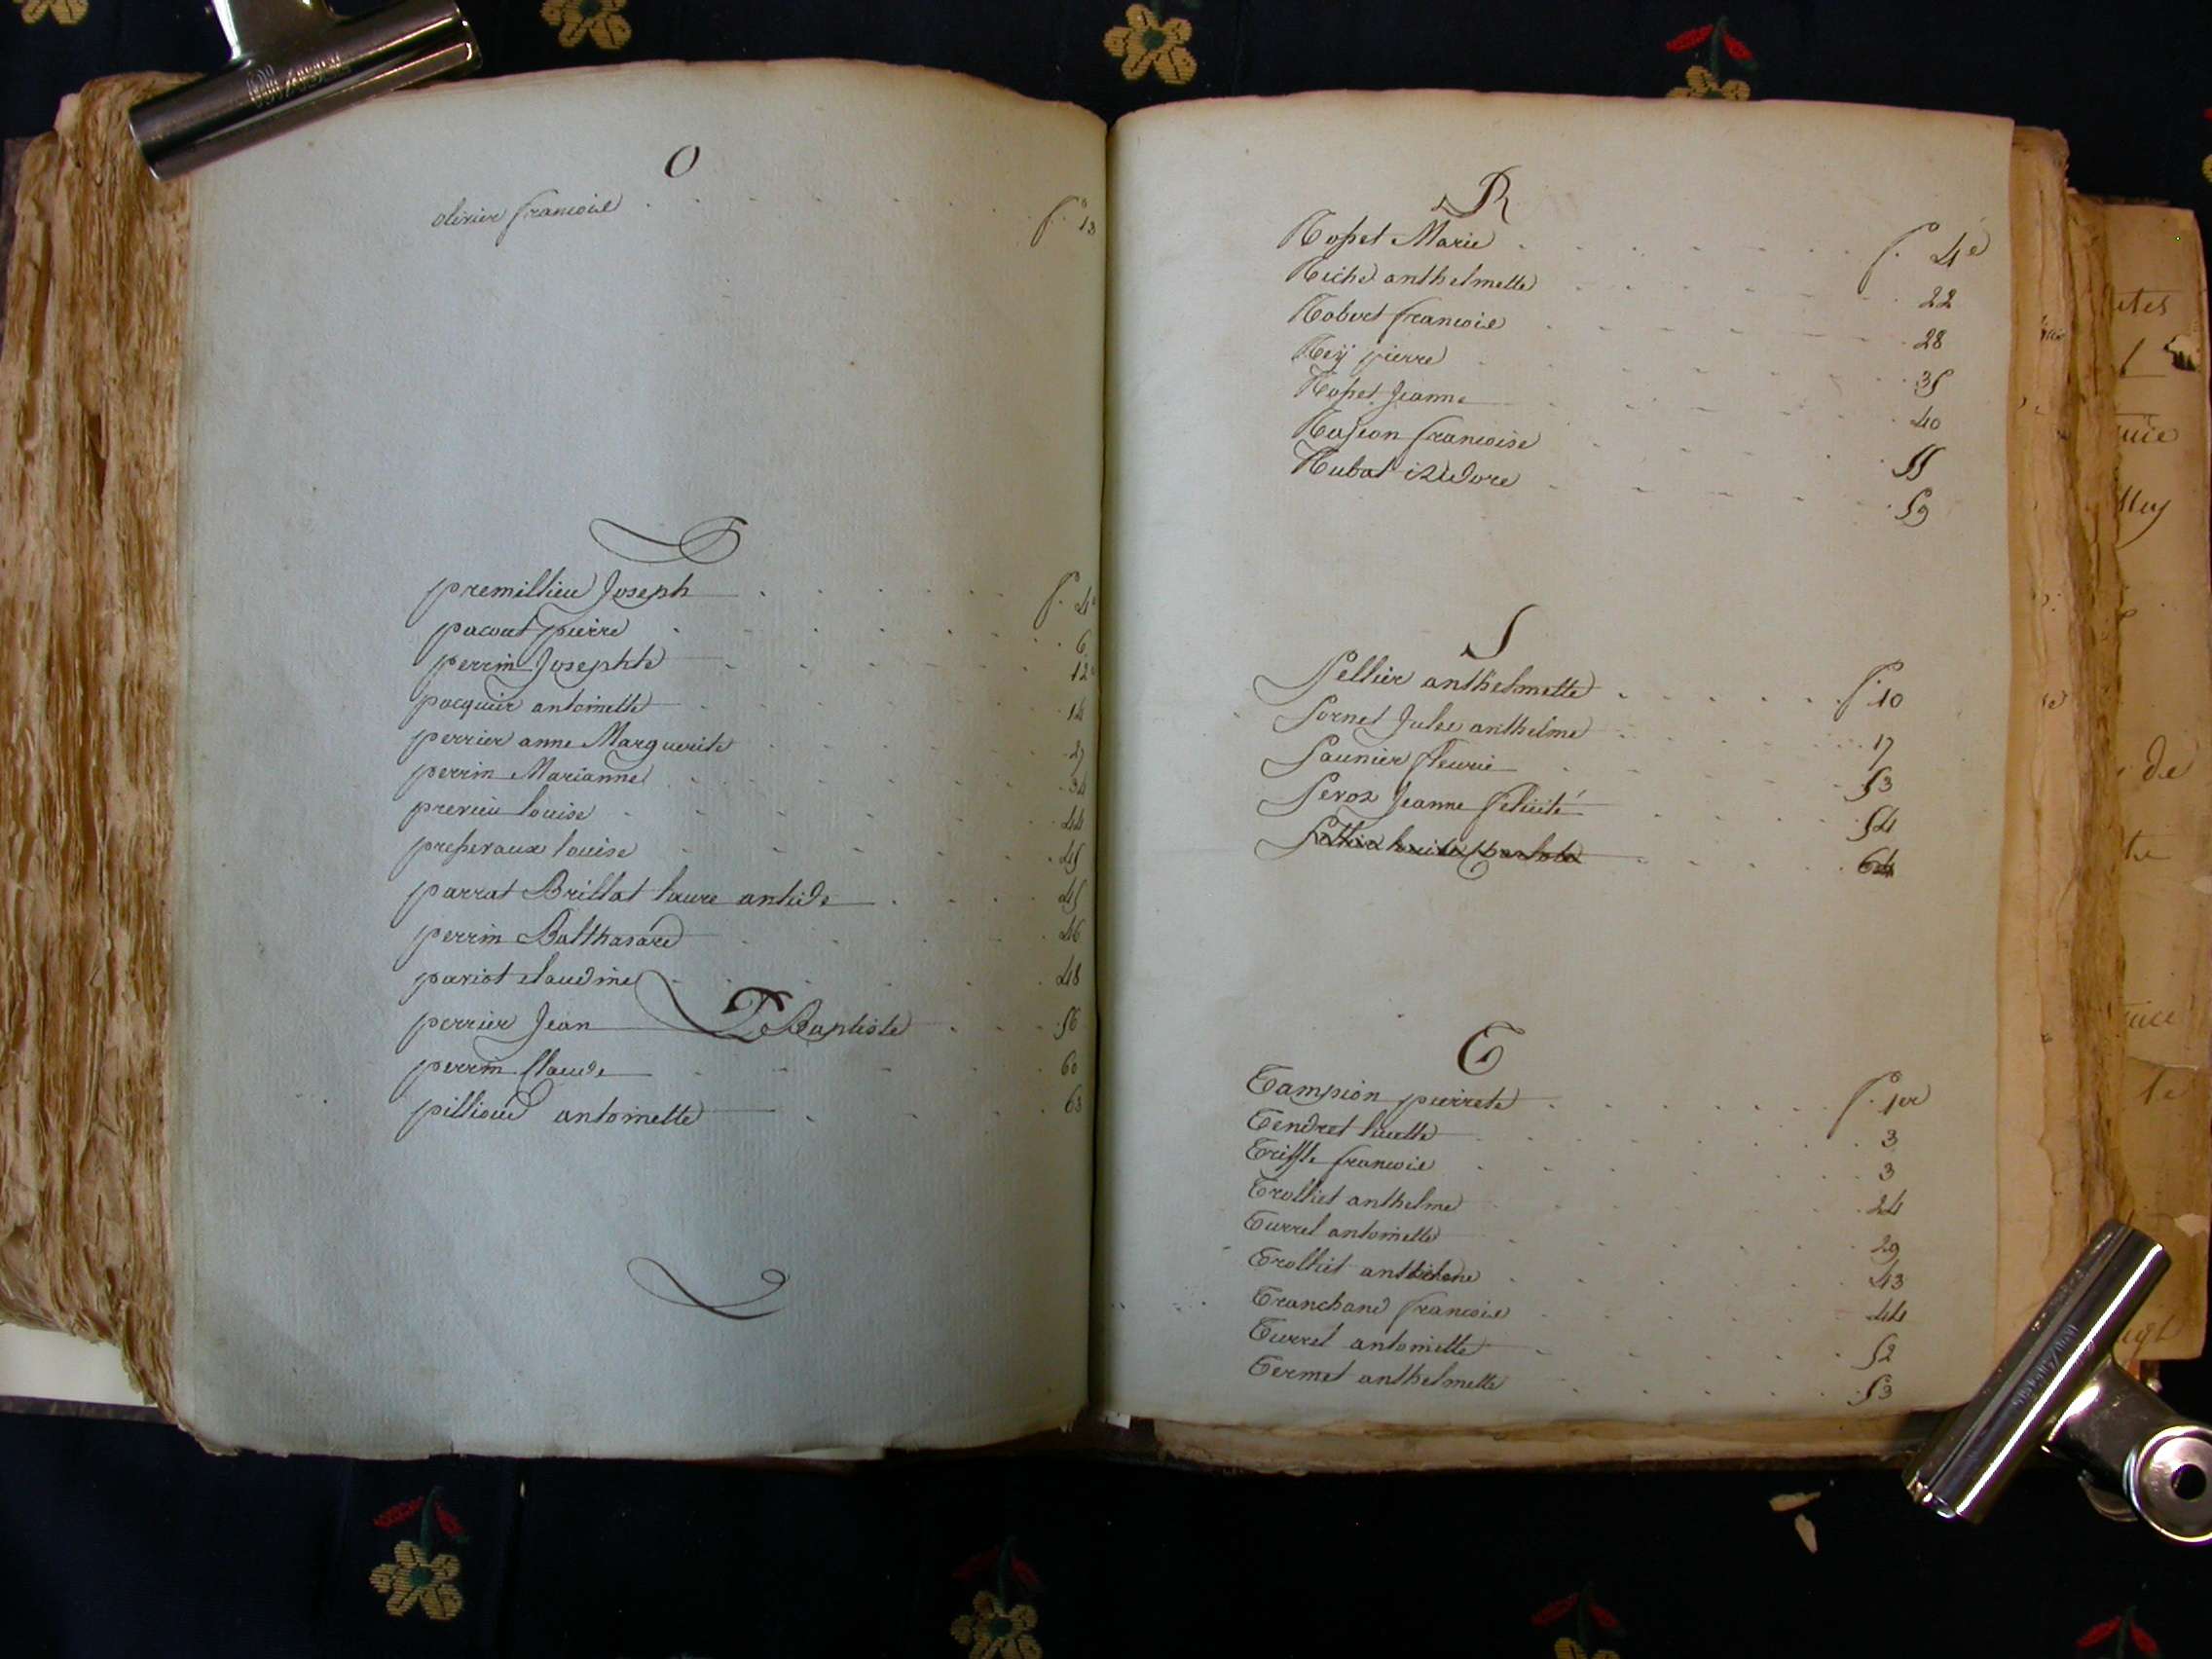 O
olivier francois f.º 13
P
premillieu Joseph f. 4e
pacout pierre 6
perrin Josephte 12e
pacquier antoinette 14
perrier anne Marguerite 27
perrin Marianne 34
prerieu louise 44
presseraux louise 45
parrat Brillat laure antide 45
perrin Balthasare 46
pariot claudine 48
perrier Jean Baptiste 56
perrin Claude 60
pillioud antoinette 63
Q
R
Rosset Marie f.º 4e
Riche anthelmette 22
Robert francois 28
Reÿ pierre 35
Rosset Jeanne 40
francoise 55
Rubat izidore 59
S
Sellier anthelmette f.º 10
Sornet Jules anthelme 17
Saunier fleurie 53
Seroz Jeanne felicité 54
64
T
Tampion pierrete f.º 1er
Tendret lucette 3
Triffle francois 3
Trolliet anthelme 24
Turrel antoinette 29
Trolliet anthelme 43
Tranchand francois 44
Turrel antoinette 52
Termet anthelmette 53